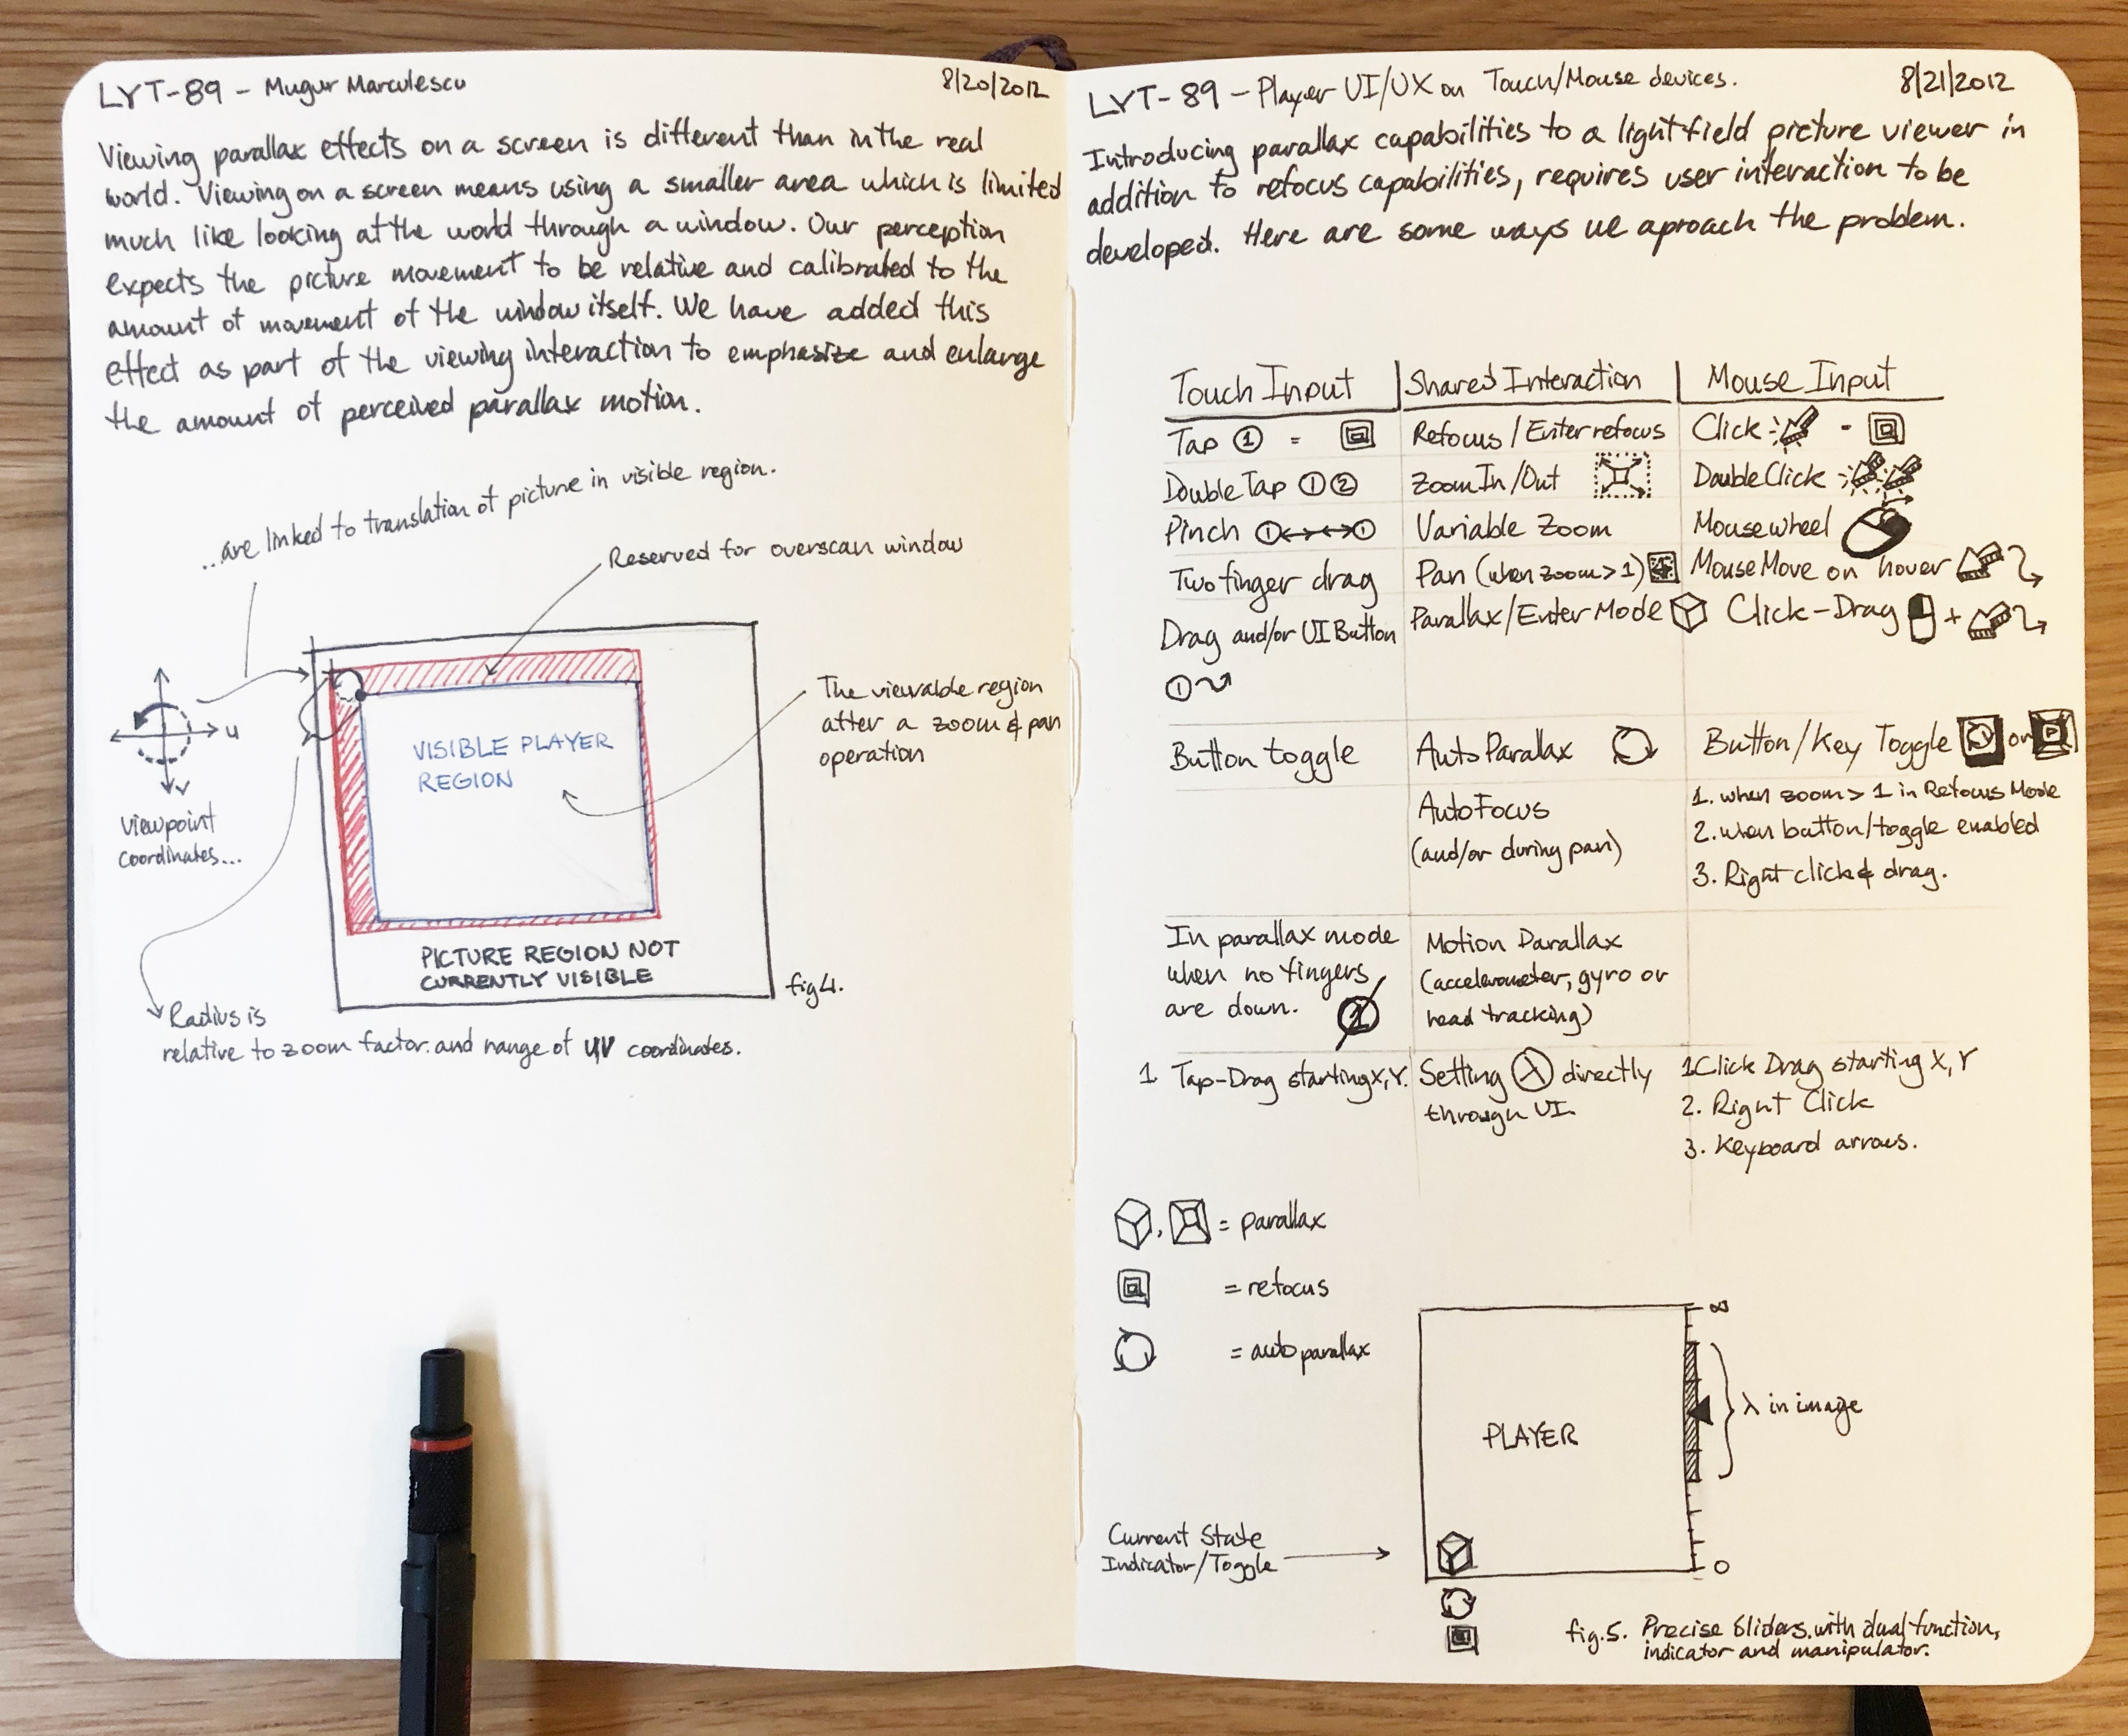 LYT-89 - Mugur Marculescu 8/20/2012
Viewing parallax effects on a screen is different than in the real
world. Viewing on a screen means using a smaller area which is limited
much like looking at the world through a window. Our perception
expects the picture movement to be relative and calibrated to the
amount of movement of the window itself. We have added this
effect as part of the viewing interaction to emphasize and enlarge
the amount of perceived parallax motion.
...are linked to translation of picture in visible region.
Reserved for overscan window
u
v
Viewpoint
coordinates...
VISIBLE PLAYER
REGION
The viewable region
after a zoom & pan
operation
PICTURE REGION NOT
CURRENTLY VISIBLE
fig 4.
Radius is
relative to zoom factor. and range of UV coordinates.
LYT-89 - Player UI/UX on Touch/Mouse devices. 8/21/2012
Introducing parallax capabilities to a light field picture viewer in
addition to refocus capabilities, requires user interaction to be
developed. Here are some ways we aproach the problem.
Touch Input Shared Interaction Mouse Input
Tap 1 = Refocus/Enter refocus Click -
Double Tap 1 2 Zoom In/Out Double Click
Pinch 1 1 Variable Zoom Mousewheel
Two finger drag Pan (when zoom > 1) Mouse Move on hover
Drag and/or UI Button Parallax/Enter Mode Click-Drag +
1
Button toggle Auto Parallax Button/Key Toggle or
AutoFocus
(and/or during pan)
1. when zoom > 1 in Refocus Mode
2. when button/toggle enabled
3. Right click & drag.
In parallax mode
when no fingers
are down. 1
Motion Parallax
(accelerometer, gyro or
head tracking)
1 Tap-Drag starting X,Y.
Setting λ directly
through UI.
1 Click Drag starting X,Y
2. Right Click
3. Keyboard arrows.
, = parallax
= refocus
= auto parallax
∞
PLAYER
λ in image
0
Current State
Indicator/Toggle
fig. 5. Precise Sliders, with dual function,
indicator and manipulator.